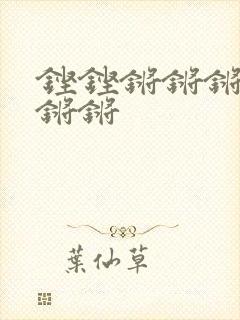 铿铿锵锵锵
锵锵
葉仙草